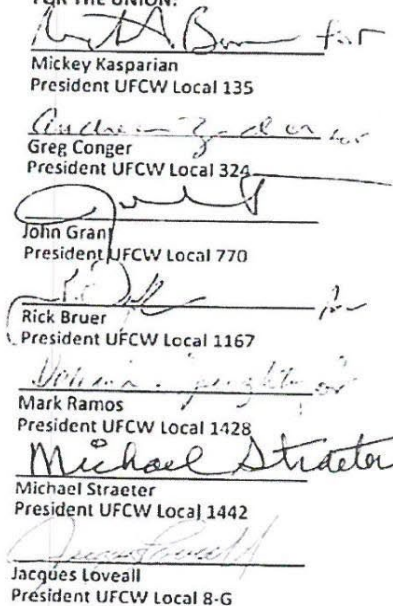 FOR THE UNION:
for
Mickey Kasparian
President UFCW Local 135
for
Greg Conger
President UFCW Local 324
John Grant
President UFCW Local 770
for
Rick Bruer
President UFCW Local 1167
for
Mark Ramos
President UFCW Local 1428
Michael Straeter
Michael Straeter
President UFCW Local 1442
Jacques Loveall
Jacques Loveall
President UFCW Local 8-G